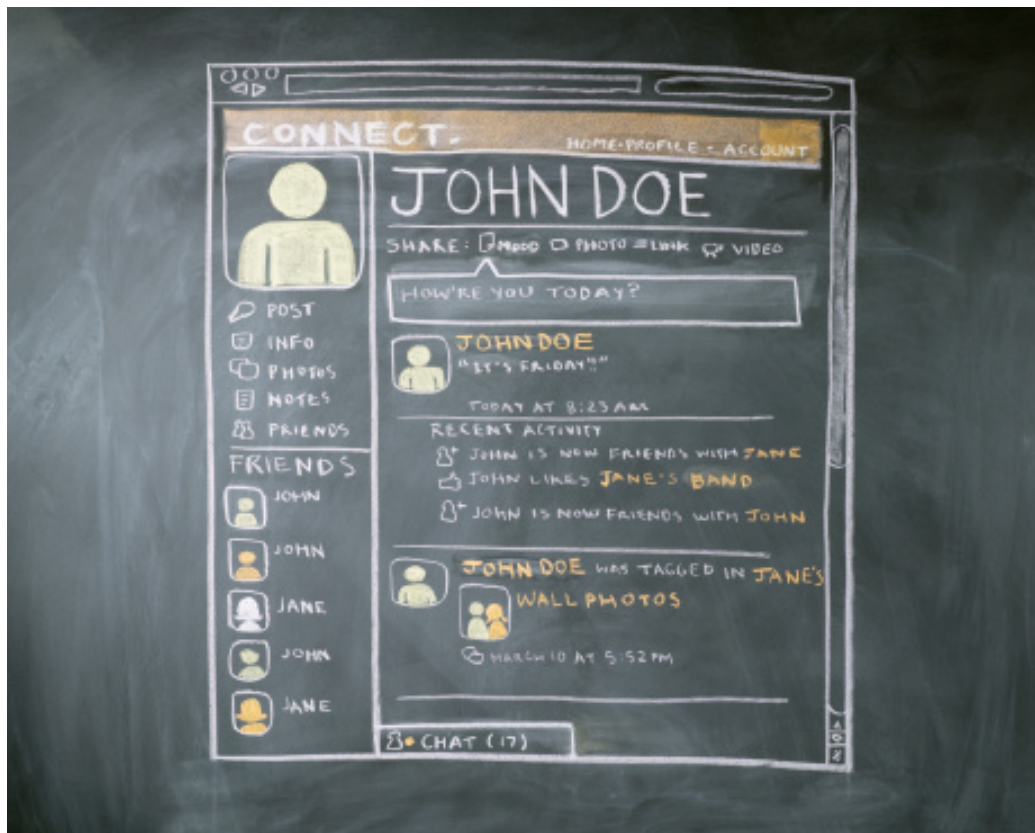 CONNECT.
HOME-PROFILE - ACCOUNT
JOHN DOE
SHARE: MOOD PHOTO LINK VIDEO
HOW'RE YOU TODAY?
POST
INFO
PHOTOS
NOTES
FRIENDS
FRIENDS
JOHN
JOHN
JANE
JOHN
JANE
JOHN DOE
"IT'S FRIDAY!!"
TODAY AT 8:23 AM
RECENT ACTIVITY
JOHN IS NOW FRIENDS WITH JANE
JOHN LIKES JANE'S BAND
JOHN IS NOW FRIENDS WITH JOHN
JOHN DOE WAS TAGGED IN JANE'S
WALL PHOTOS
MARCH 10 AT 5:52 PM
CHAT (17)